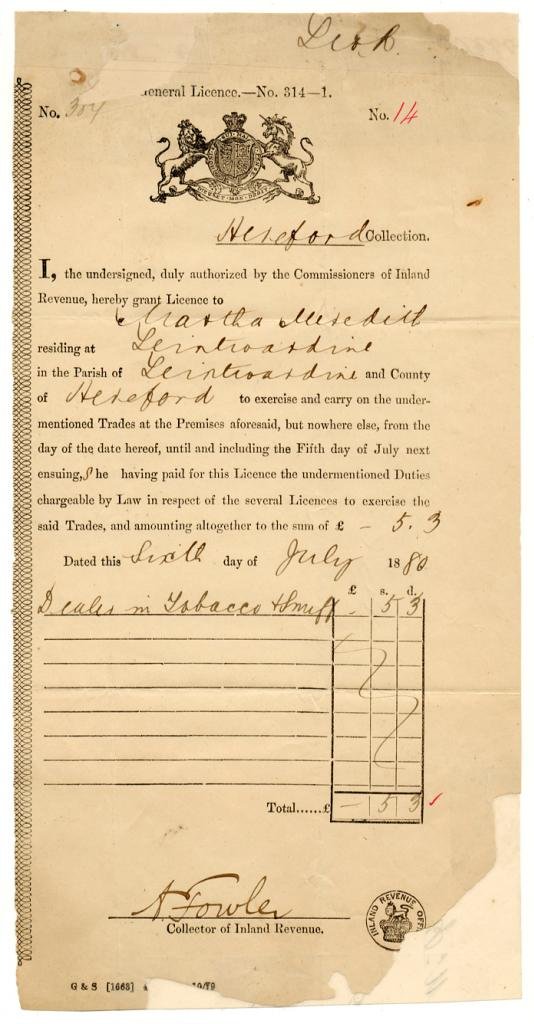 eneral Licence.—No. 314—1.
No. 304
No. 14
Hereford Collection.
I, the undersigned, duly authorized by the Commissioners of Inland
Revenue, hereby grant Licence to
Martha Meredith
residing at Leintwardine
in the Parish of Leintwardine and County
of Hereford to exercise and carry on the under-
mentioned Trades at the Premises aforesaid, but nowhere else, from the
day of the date hereof, until and including the Fifth day of July next
ensuing, She having paid for this Licence the undermentioned Duties
chargeable by Law in respect of the several Licences to exercise the
said Trades, and amounting altogether to the sum of £ - 5. 3
Dated this Sixth day of July 1880
£ s. d.
Dealer in Tobacco & Snuff - 5 3
Total......£ - 5 3
A. Fowler
Collector of Inland Revenue.
INLAND REVENUE OFF
G & S [1663] 10/79